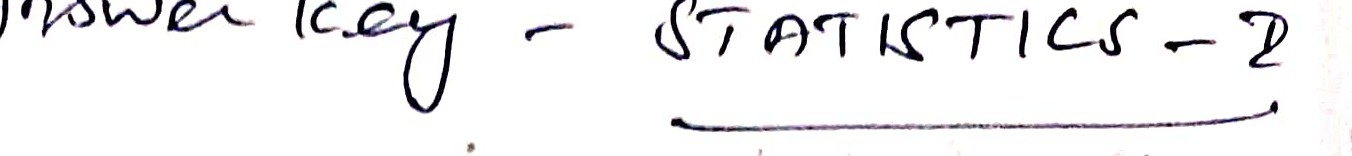 Answer Key - STATISTICS - I